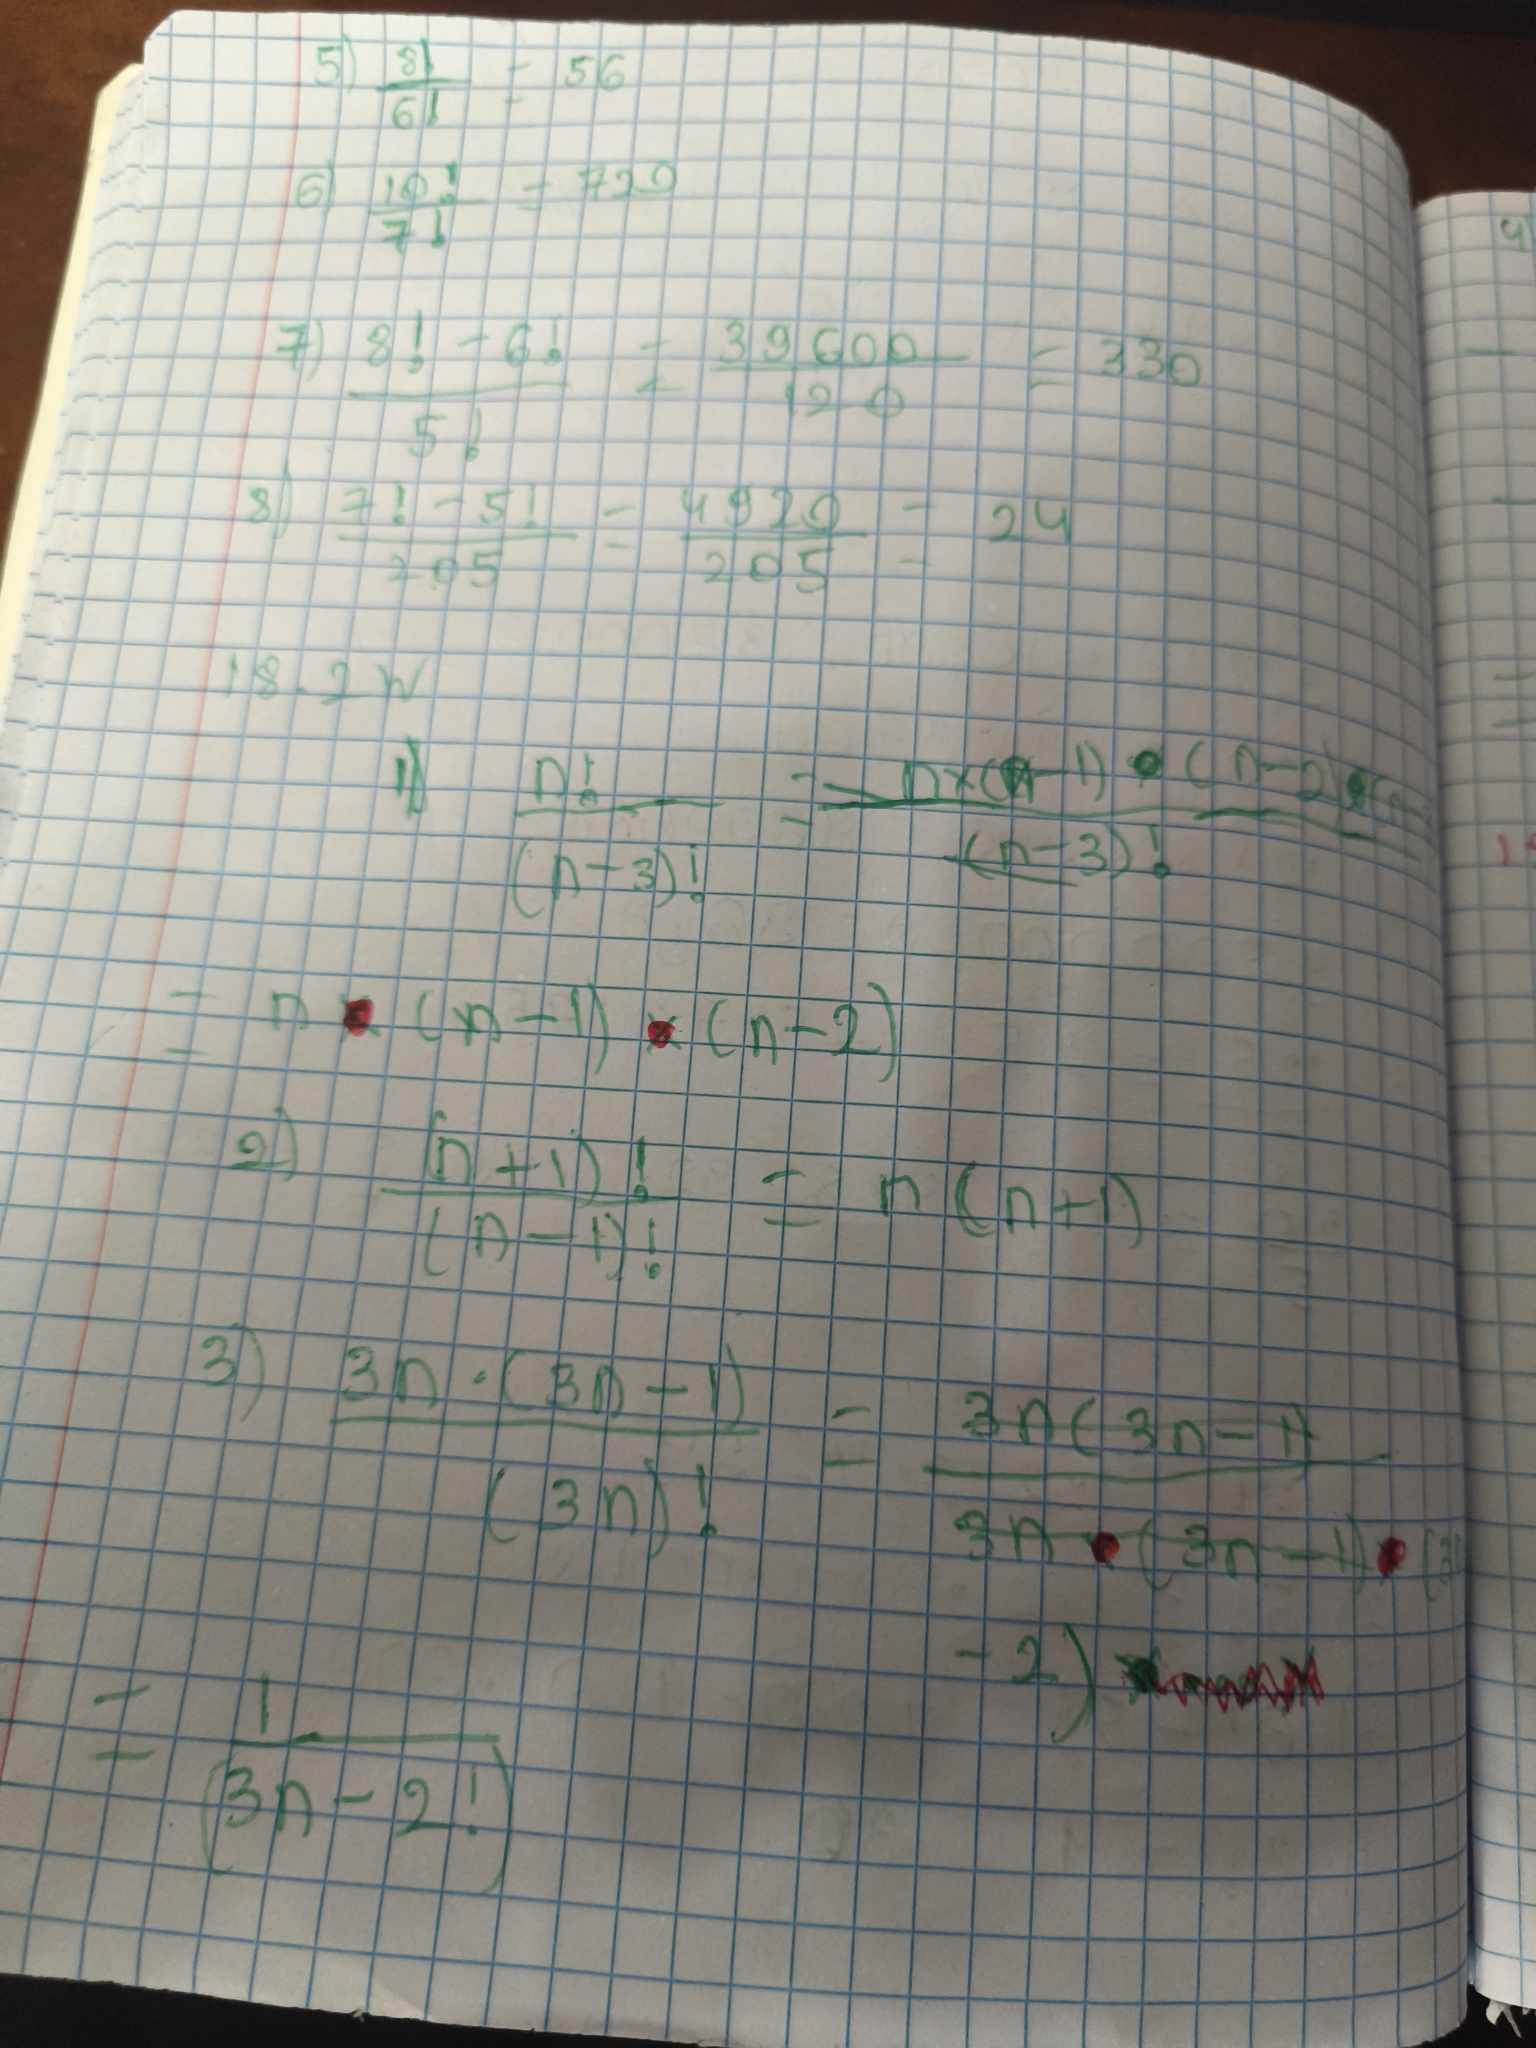 5) 8!/6! = 56
6) 10!/7! = 720
7) (8! - 6!)/5! = 39600/120 = 330
8) (7! - 5!)/205 = 4920/205 = 24
18.2 W
1) n!/(n-3)! = n×(n-1)•(n-2)•/(n-3)!
= n • (n-1) • (n-2)
2) (n+1)!/(n-1)! = n(n+1)
3) 3n·(3n-1)/(3n)! = 3n(3n-1)/3n•(3n-1)•(3
-2)
= 1/(3n-2!)